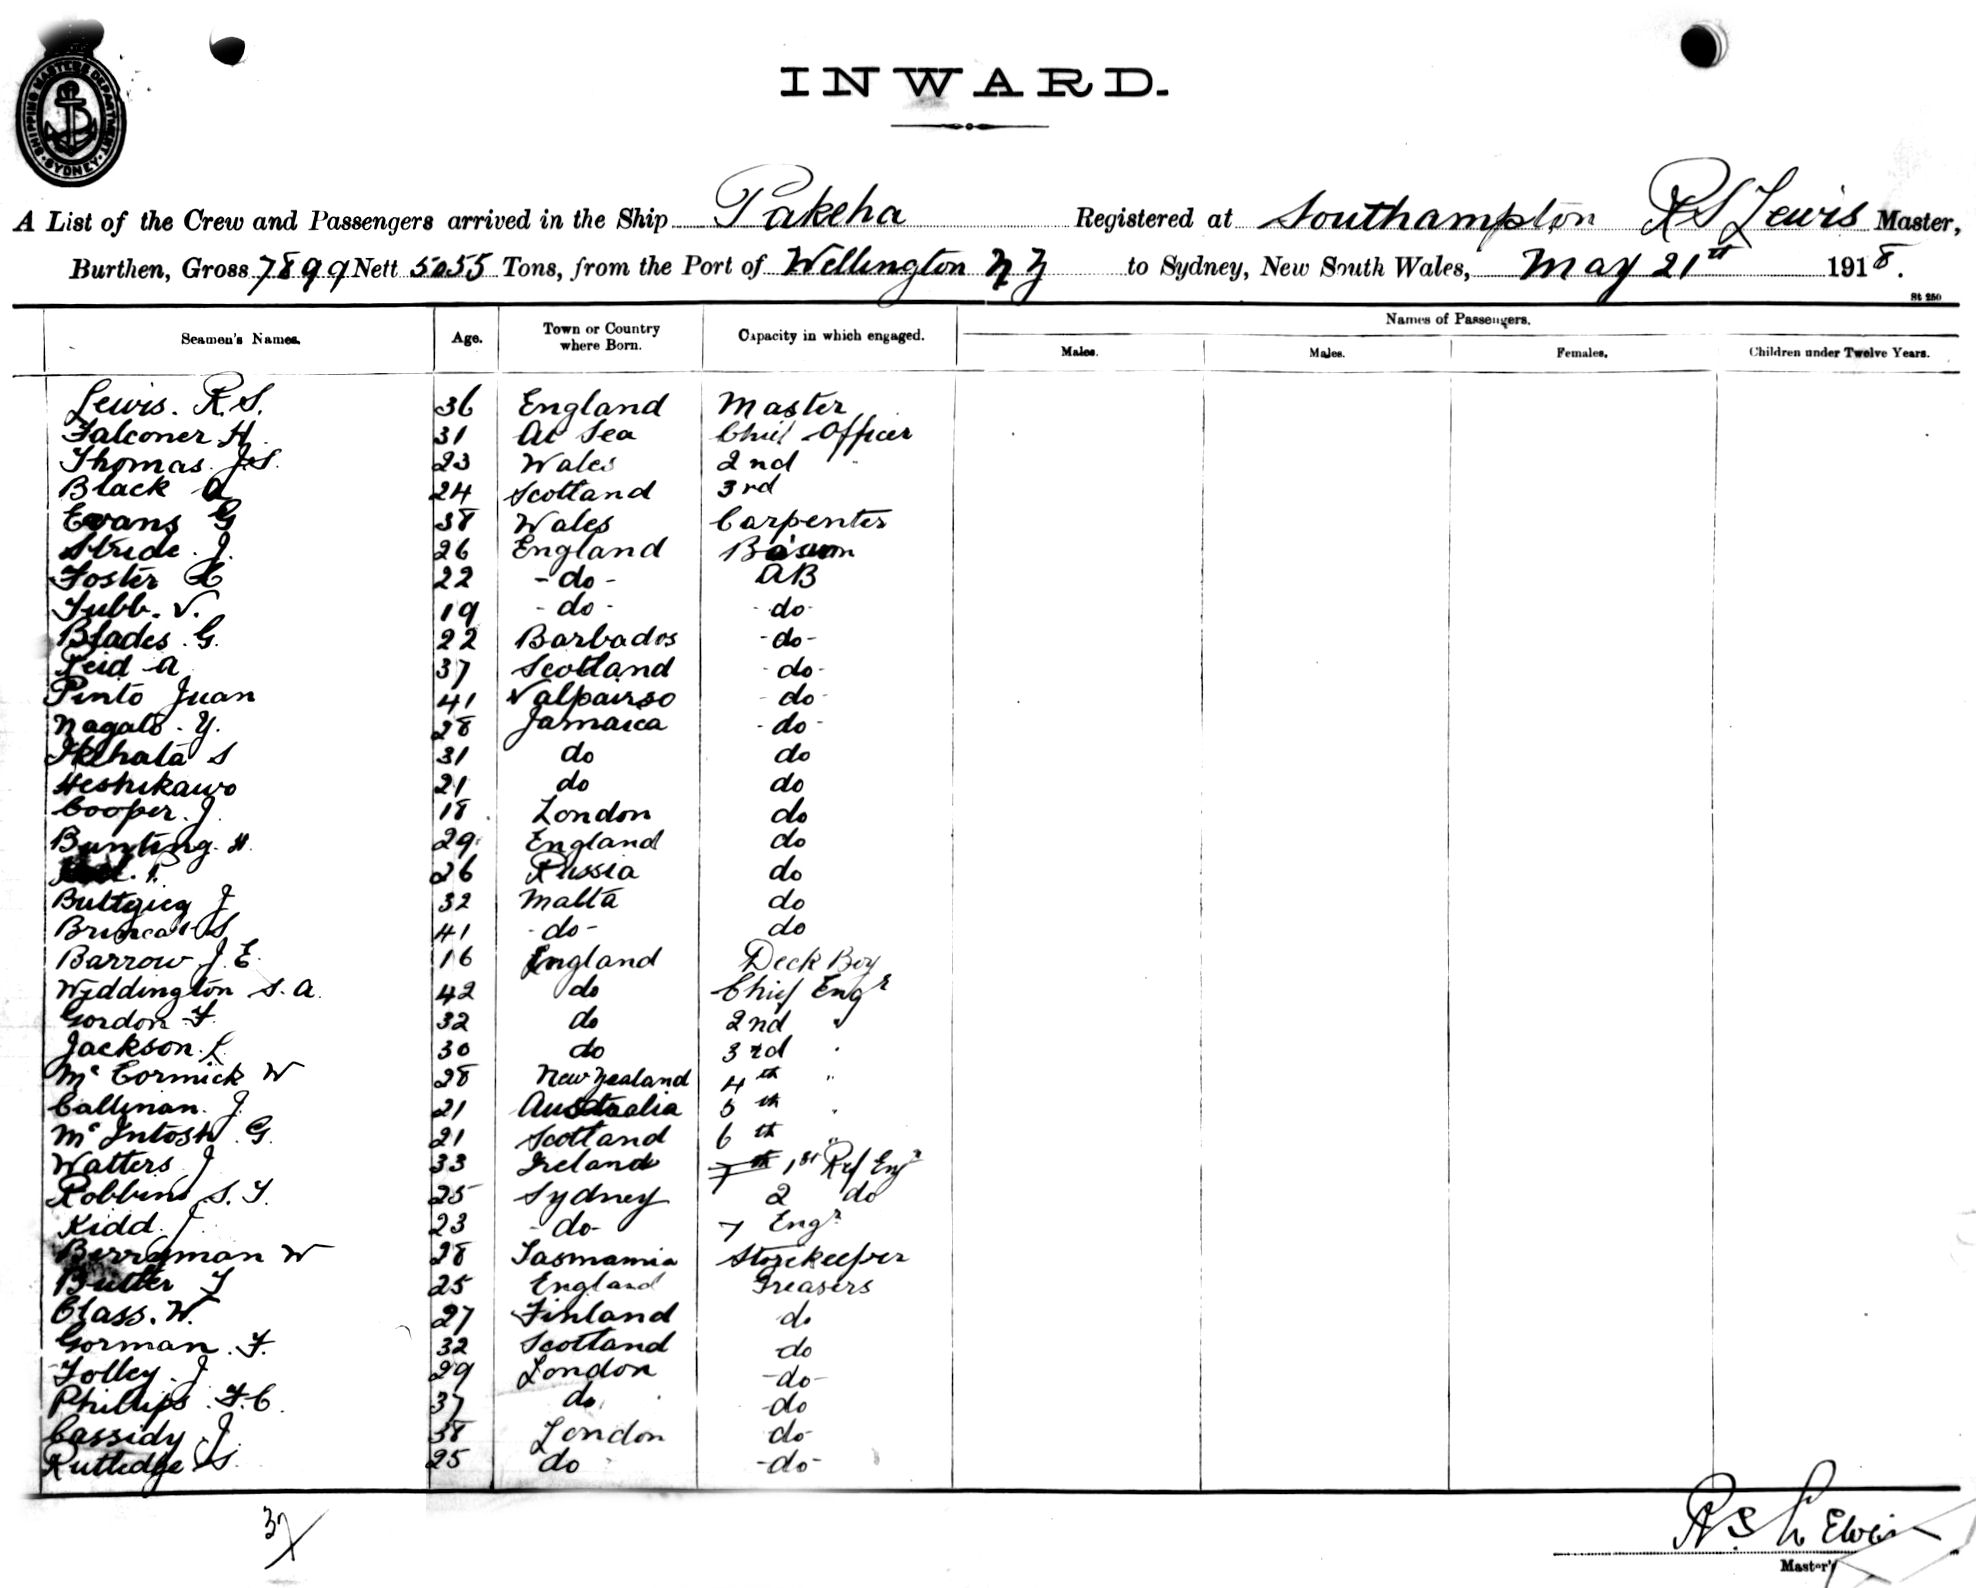 SHIPPING MASTERS DEPARTMENT · SYDNEY ·
INWARD.
A List of the Crew and Passengers arrived in the Ship Pakeha Registered at Southampton R S Lewis Master,
Burthen, Gross 7899 Nett 5055 Tons, from the Port of Wellington N Z to Sydney, New South Wales, May 21st 1918.
St 250
Seamen's Names. Age. Town or Country where Born. Capacity in which engaged. Names of Passengers.
Males. Males. Females. Children under Twelve Years.
Lewis. R.S. 36 England Master
Falconer H. 31 At Sea Chief Officer
Thomas J.S. 23 Wales 2nd "
Black A 24 Scotland 3rd
Evans G 38 Wales Carpenter
Stride. J. 26 England Bo'sun
Foster 22 -do- AB
Tubb. V. 19 -do- -do-
Blades. G. 22 Barbados -do-
Reid A 37 Scotland -do-
Pinto Juan 41 Valpairso -do-
Nagato. Y. 28 Jamaica -do-
Ikehata S 31 do do
Heshikawo 21 do do
Cooper. J. 18 London do
Bunting. H. 29 England do
P. 26 Russia do
Buttgieg J 32 Malta do
Brincat S 41 -do- do
Barrow J.E. 16 England Deck Boy
Widdington S.A. 42 do Chief Engr
Gordon F. 32 do 2nd "
Jackson. L. 30 do 3rd "
Mc Cormick W 28 New Zealand 4th "
Callinan. J. 21 Australia 5th "
Mc Intosh G. 21 Scotland 6th "
Watters J 33 Ireland 7th 1st Ref Engr
Robbins S.T. 25 Sydney 2 do
Kidd. J 23 -do- 7 Engr
Berryman W 28 Tasmania Storekeeper
Butler T 25 England Greasers
Class. W. 27 Finland do
Gorman. F. 32 Scotland do
Tolley. J 29 London -do-
Phillips. F.C. 37 do -do
Cassidy. J. 38 London do-
Rutledge S. 25 do -do-
37
R S Lewis
Master